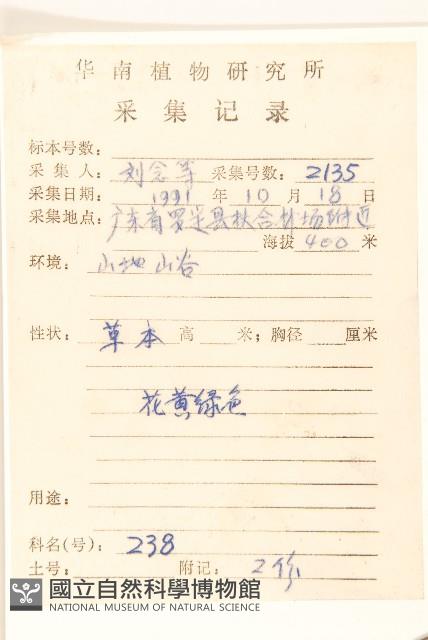 华南植物研究所
采集记录
标本号数：
采集人：刘念等 采集号数：2135
采集日期：1991 年 10 月 18 日
采集地点：广东省罗定县 林场附近
海拔 400 米
环境：山地山谷
性状：草本 高 米；胸径 厘米
花黄绿色
用途：
科名(号)：238
土号： 附记：2份
國立自然科學博物館
NATIONAL MUSEUM OF NATURAL SCIENCE